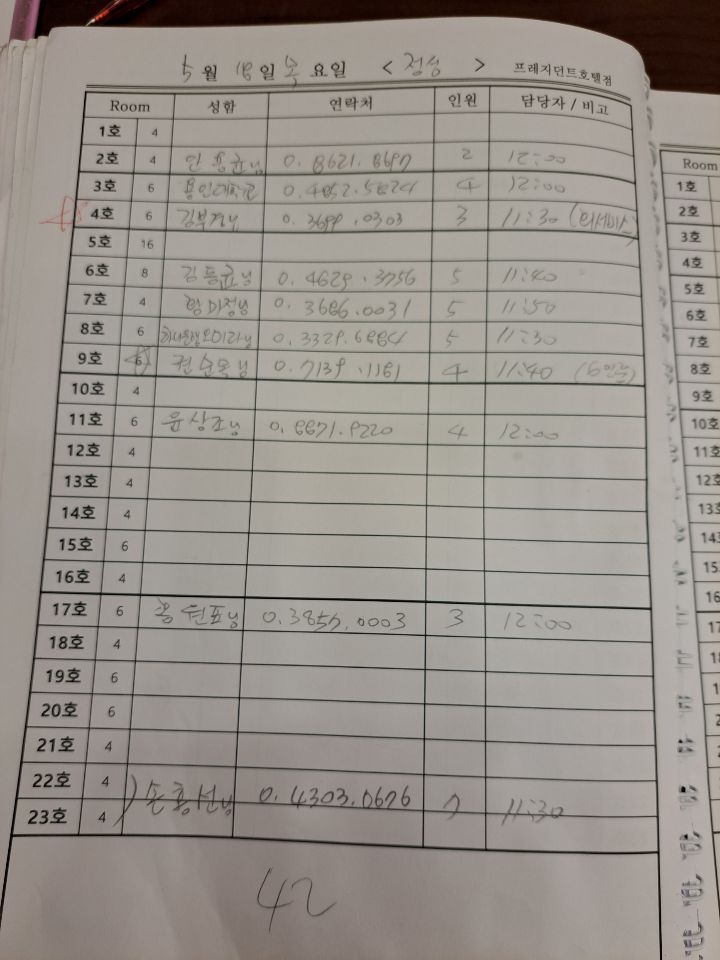 5월 18일 목요일 < 점심 > 프레지던트호텔점
Room 성함 연락처 인원 담당자 / 비고
1호 4
2호 4 안용균님 0. 8621. 8697 2 12:00
3호 6 용인대학교 0. 4852. 5824 4 12:00
4호 6 김부경님 0. 3699. 0303 3 11:30
5호 16
6호 8 김동균님 0. 4629. 3756 5 11:40
7호 4 황미정님 0. 3686. 0031 5 11:50
8호 6 하나은행 오미라님 0. 3329. 6884 5 11:30
9호 6 권순옥님 0. 7139. 1181 4 11:40
10호 4
11호 6 윤상조님 0. 8871. 9220 4 12:00
12호 4
13호 4
14호 4
15호 6
16호 4
17호 6 홍원표님 0. 3857. 0003 3 12:00
18호 4
19호 6
20호 6
21호 4
22호 4 손흥선님 0. 4303. 0676 7 11:30
23호 4
42
Room
1호
2호
3호
4호
5호
6호
7호
8호
9호
10호
11호
12호